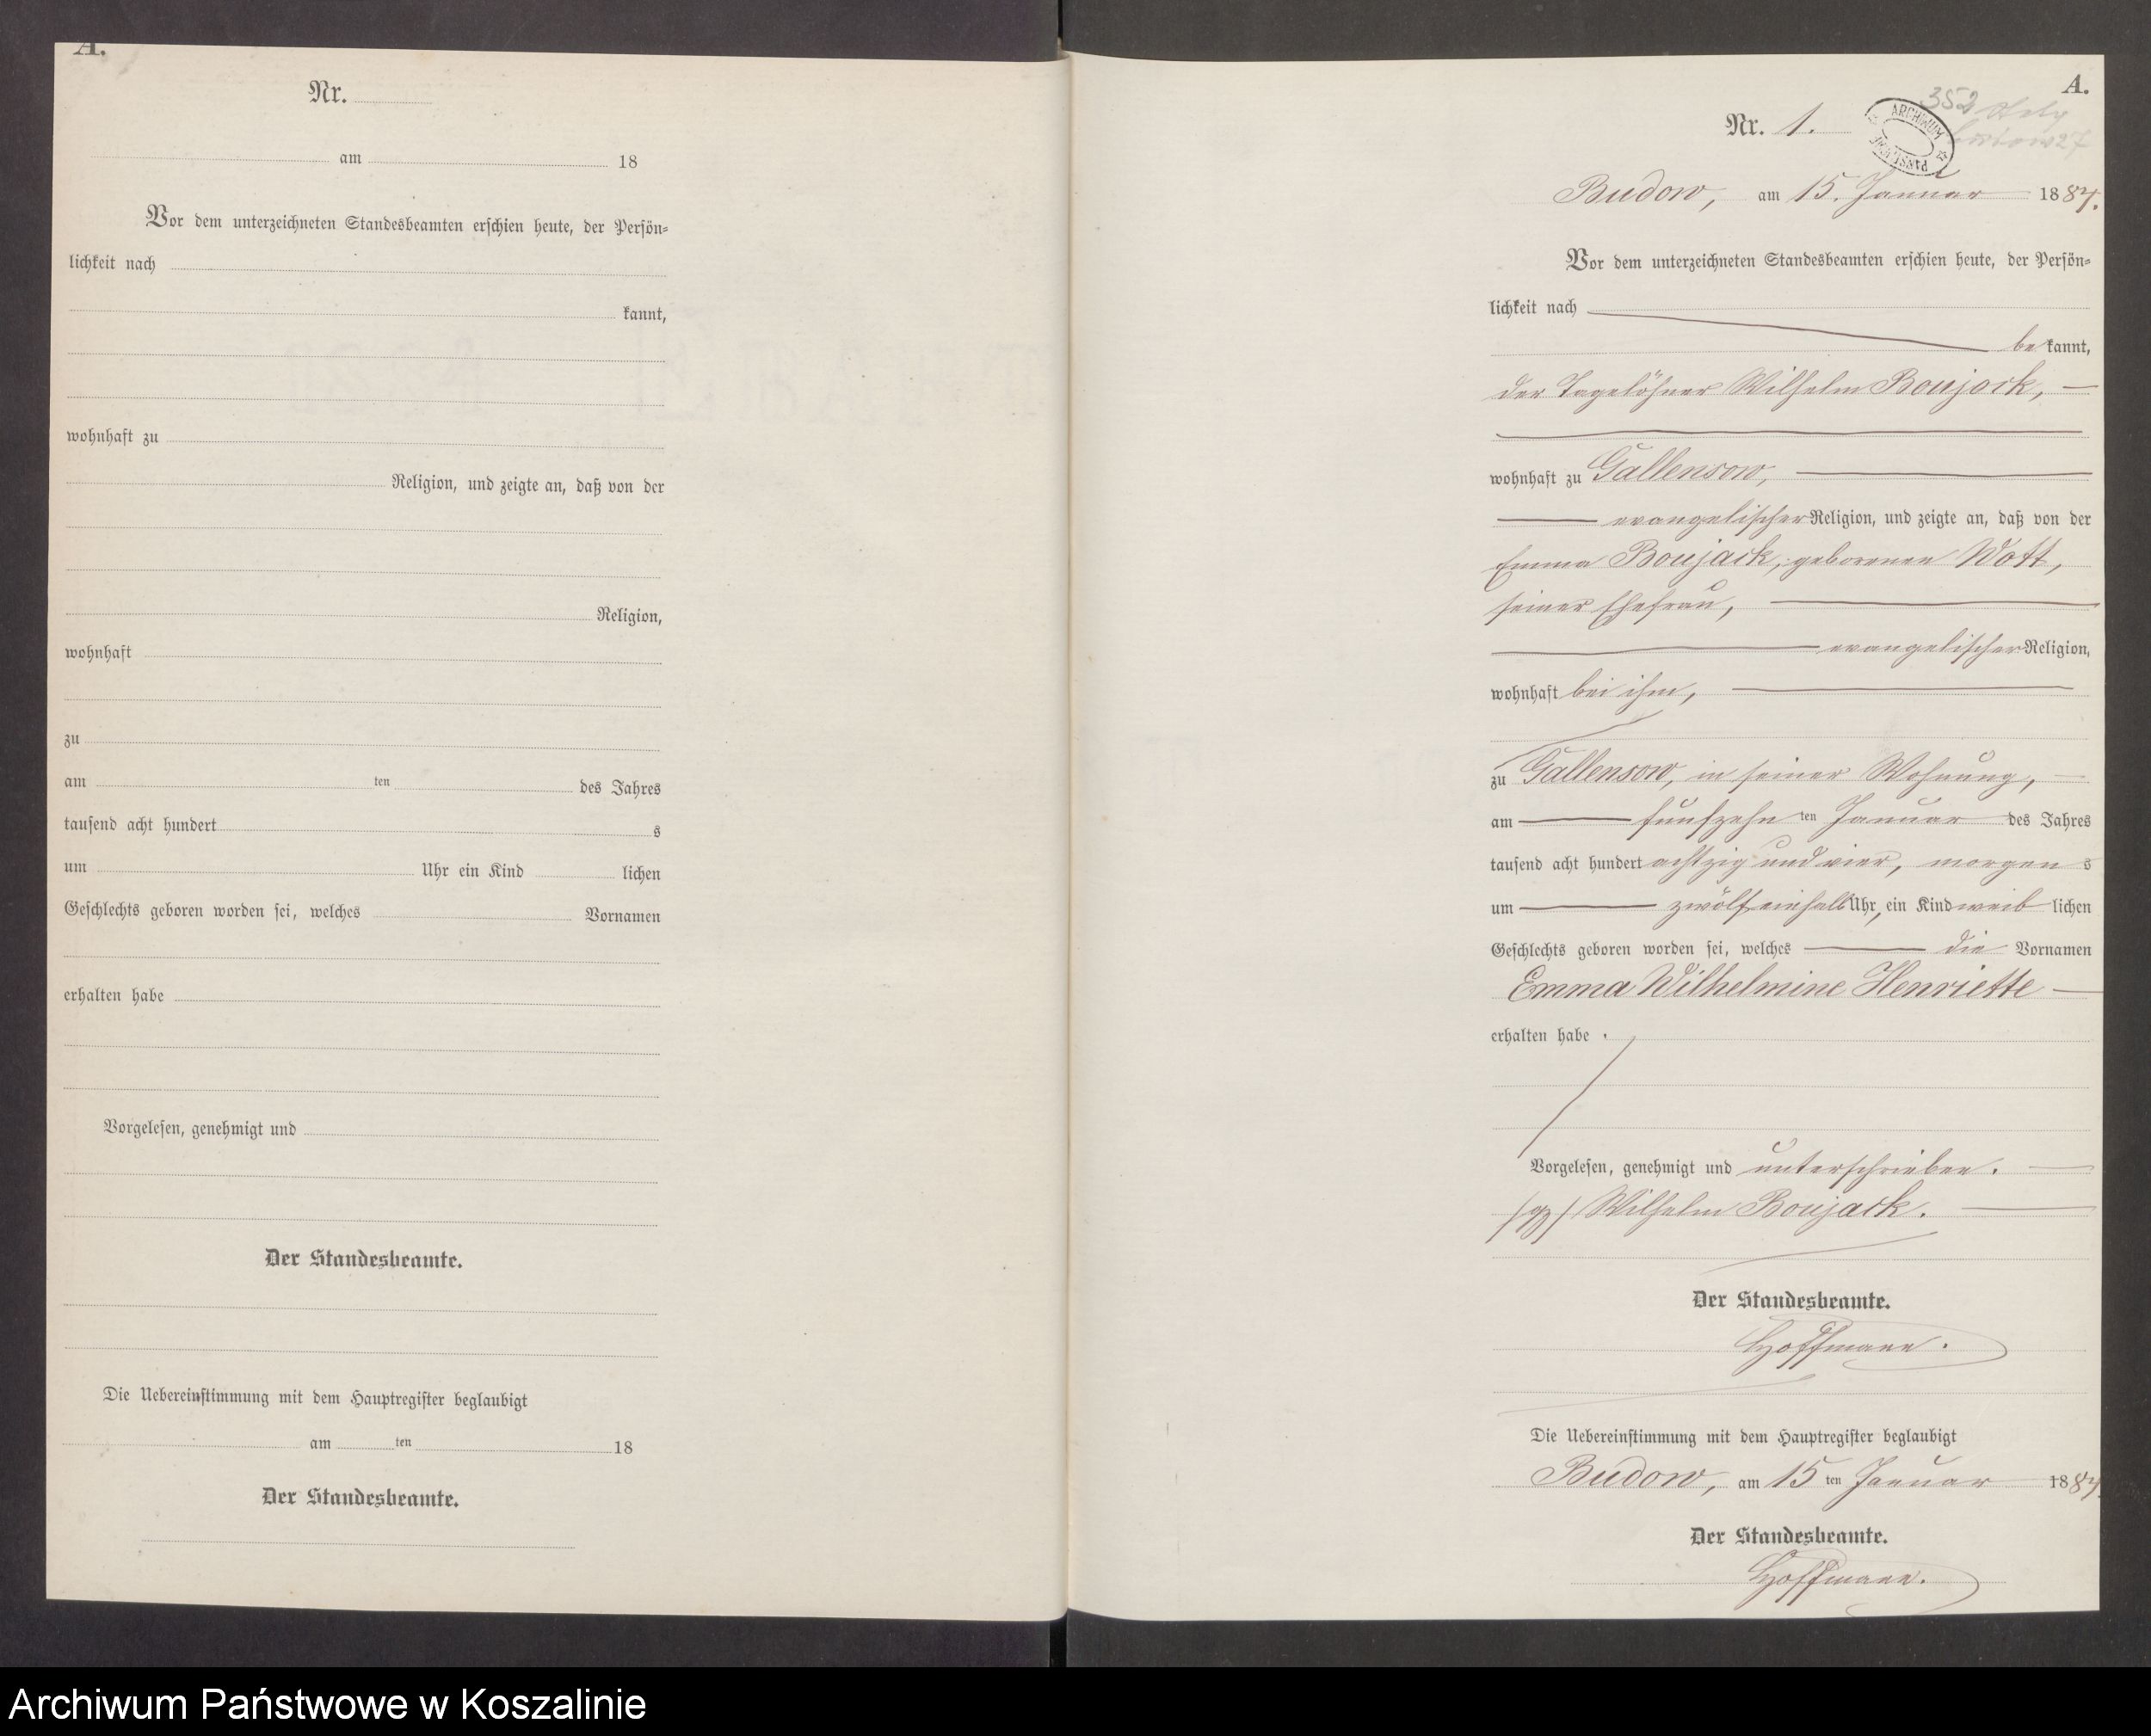 A.
Nr.
am 18
Vor dem unterzeichneten Standesbeamten erschien heute, der Persön-
lichkeit nach
kannt,
wohnhaft zu
Religion, und zeigte an, daß von der
Religion,
wohnhaft
zu
am ten des Jahres
tausend acht hundert s
um Uhr ein Kind lichen
Geschlechts geboren worden sei, welches Vornamen
erhalten habe
Vorgelesen, genehmigt und
Der Standesbeamte.
Die Uebereinstimmung mit dem Hauptregister beglaubigt
am ten 18
Der Standesbeamte.
A.
352
Nr. 1.
ARCHIWUM
Budow, am 15. Januar 1884.
Vor dem unterzeichneten Standesbeamten erschien heute, der Persön-
lichkeit nach
bekannt,
der Tagelöhner Wilhelm Boujack,
wohnhaft zu Gallensow,
evangelischer Religion, und zeigte an, daß von der
Emma Boujack, geborenen Wott,
seiner Ehefrau,
evangelischer Religion,
wohnhaft bei ihm,
zu Gallensow, in seiner Wohnung,
am fünfzehn ten Januar des Jahres
tausend acht hundert achtzig und vier, morgens
um zwölf einhalb Uhr, ein Kind weiblichen
Geschlechts geboren worden sei, welches die Vornamen
Emma Wilhelmine Henriette
erhalten habe.
Vorgelesen, genehmigt und unterschrieben.
/gz/ Wilhelm Boujack.
Der Standesbeamte.
Hoffmann.
Die Uebereinstimmung mit dem Hauptregister beglaubigt
Budow, am 15 ten Januar 1884
Der Standesbeamte.
Hoffmann.
Archiwum Państwowe w Koszalinie